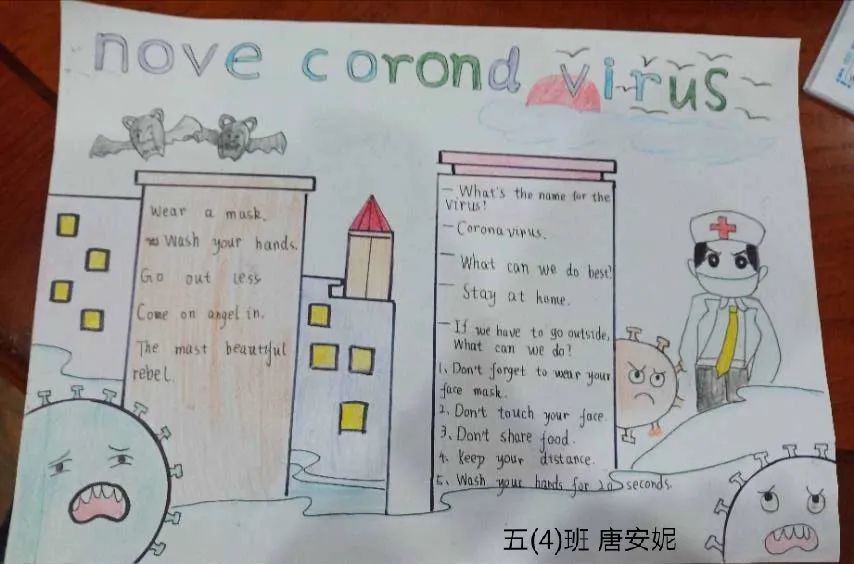 nove corond virus
Wear a mask.
Wash your hands.
Go out less
Come on angel in.
The mast beautyful
rebel.
— What's the name for the
virus?
— Coronavirus.
— What can we do best?
— Stay at home.
— If we have to go outside,
What can we do?
1、Don't forget to wear your
face mask.
2、Don't touch your face.
3、Don't share food.
4、Keep your distance.
5、Wash your hands for 20 seconds.
五(4)班 唐安妮